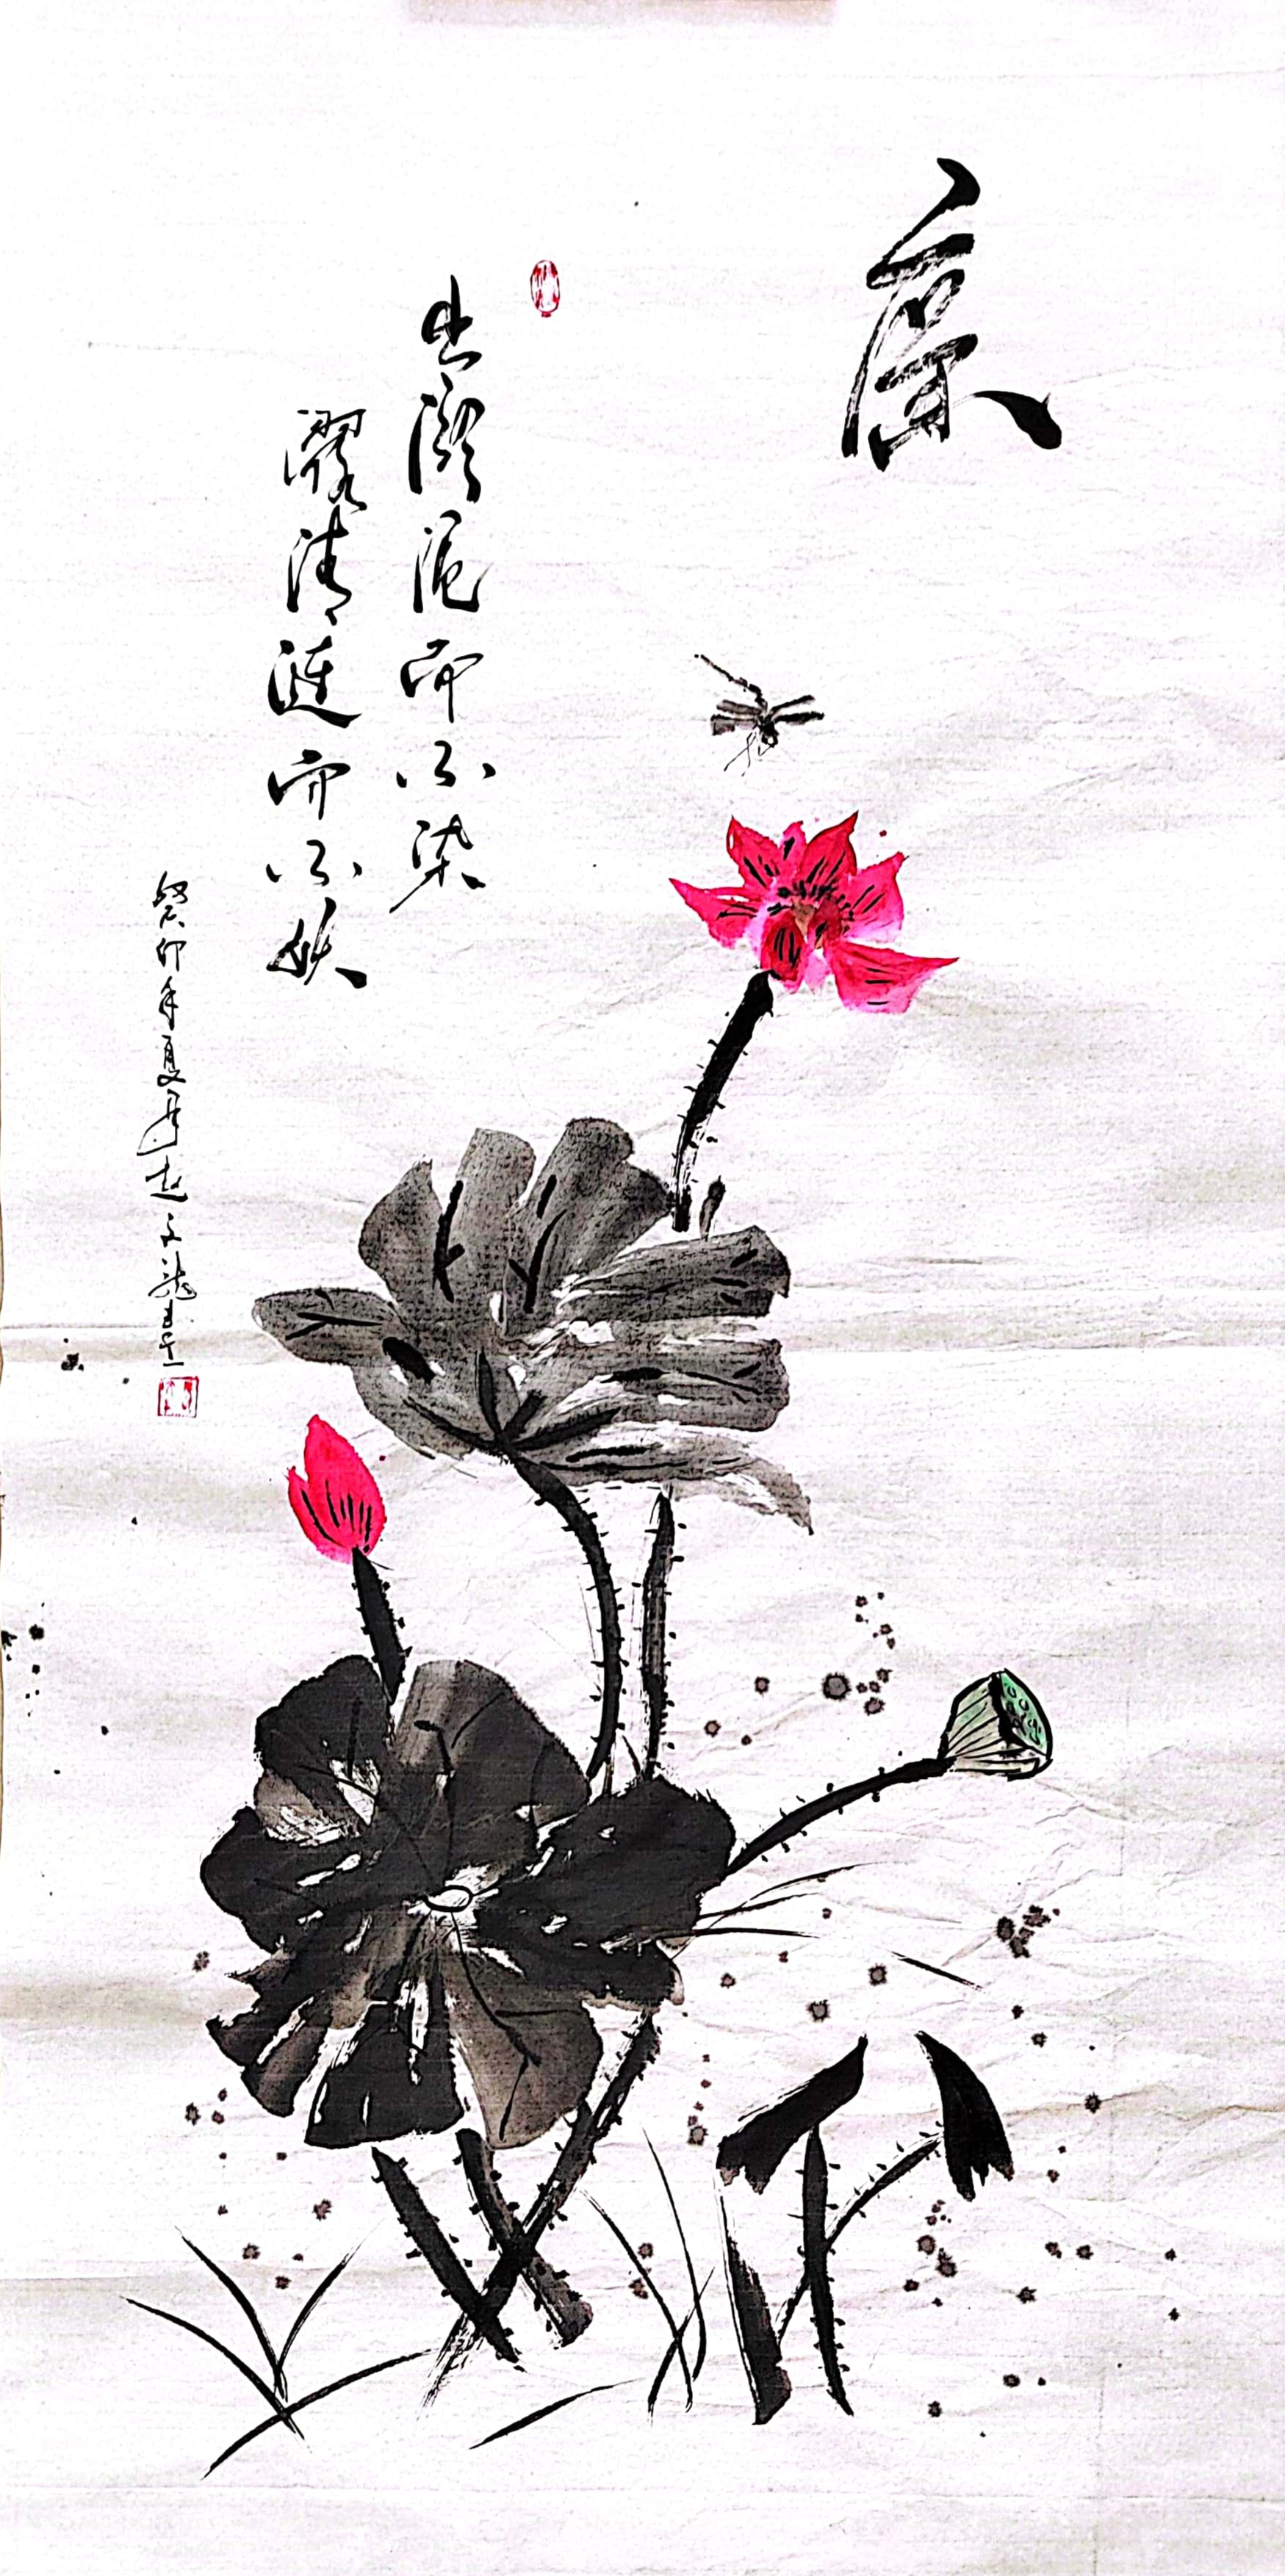 廉
出淤泥而不染
濯清漣而不妖
癸卯年夏月赵文龍